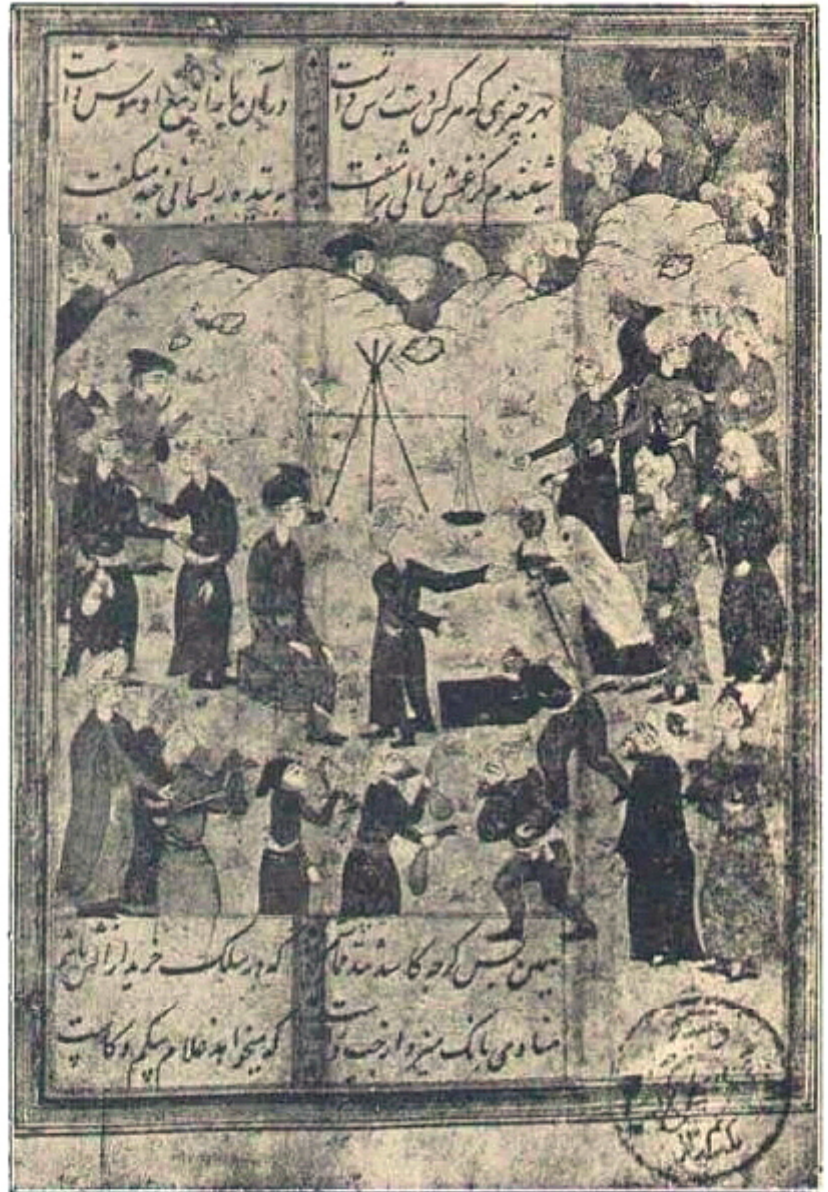 بهر چیزی که هر کس دست رس داشت در آن بازار بیع او هوس داشت
شنیدم کز غمش زالی برآشفت ریسمانی چند میگفت
همین بس گرچه کاسد قماشم که در سلک خریدارانش باشم
منادی بانگ میزد از چپ و راست که میخواهد غلام بیکم و کاست